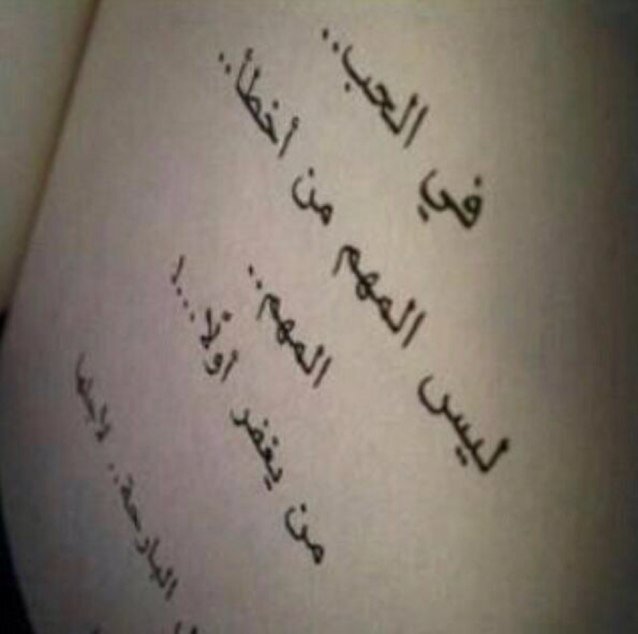 في الحب..
ليس المهم من أخطأ..
المهم..
من يغفر أولًا...!
البارحة..